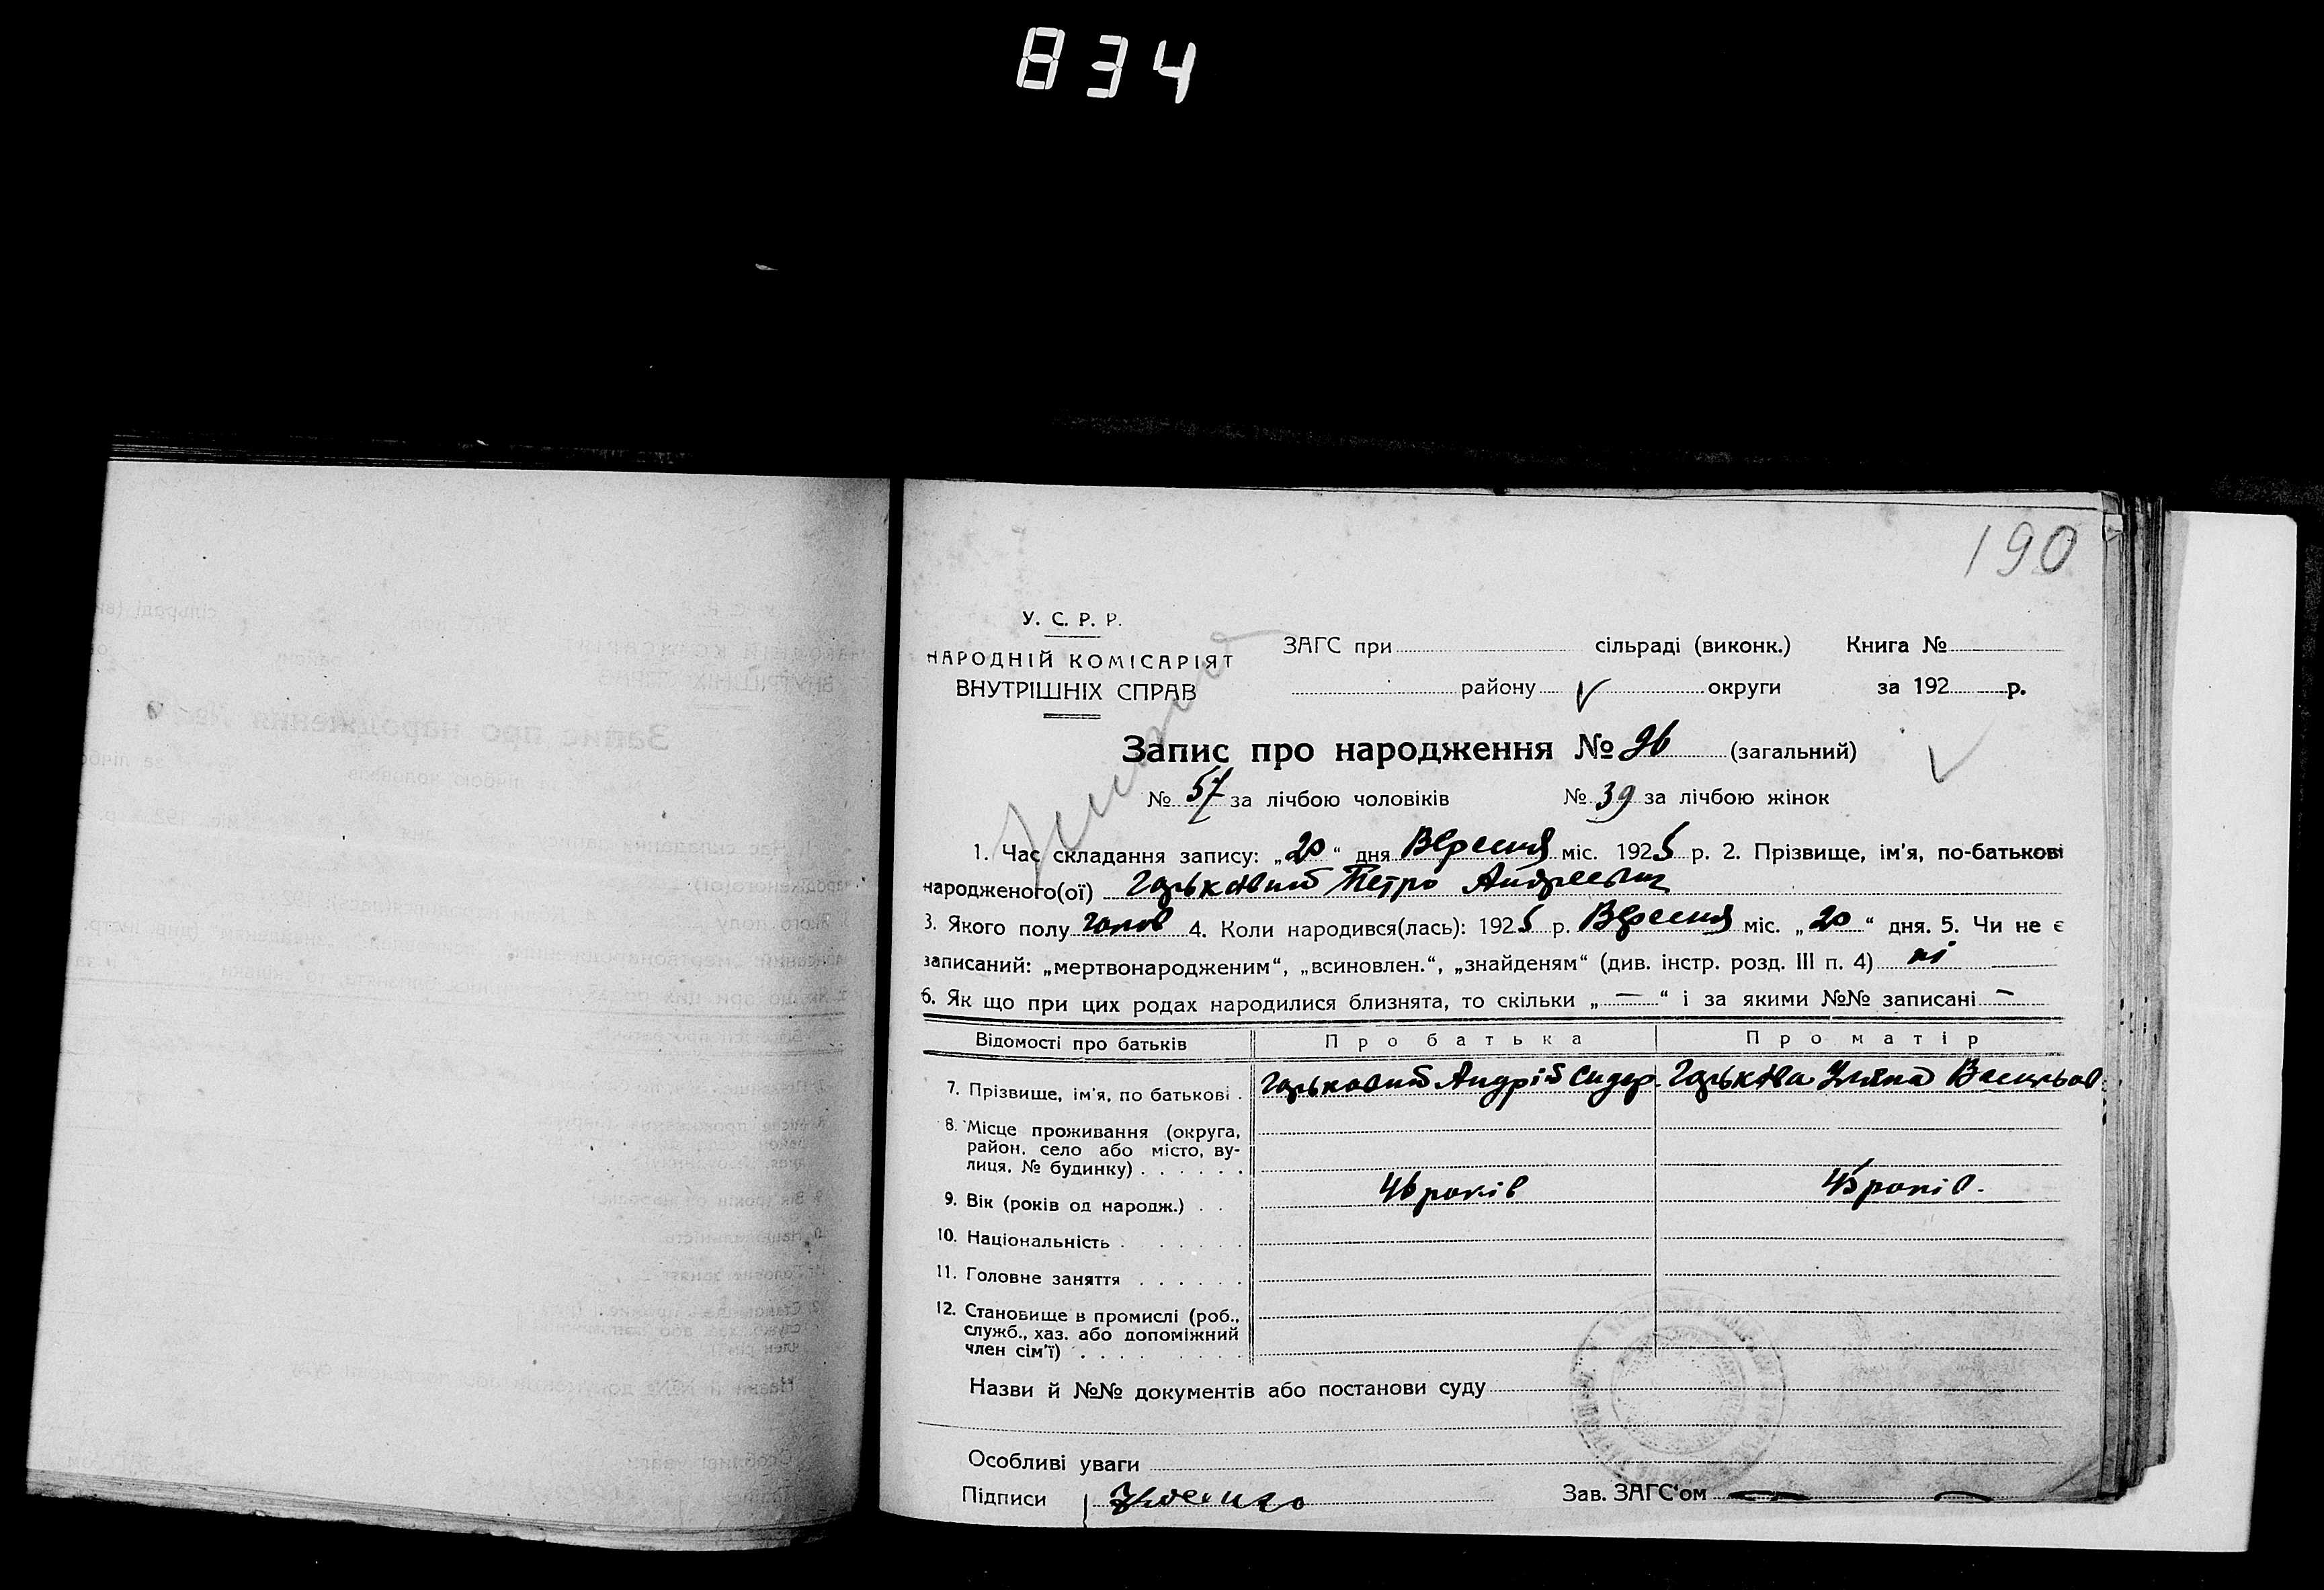 834
190
У. С. Р. Р.
НАРОДНІЙ КОМІСАРІЯТ
ВНУТРІШНІХ СПРАВ
ЗАГС при сільраді (виконк.) Книга №
району округи за 192 р.
Запис про народження № 96 (загальний)
№ 57 за лічбою чоловіків № 39 за лічбою жінок
1. Час складання запису: „20“ дня Вересня міс. 1925 р. 2. Прізвище, ім'я, по-батькові
народженого(ої) Гарьковий Петро Андреевич
3. Якого полу чолов 4. Коли народився(лась): 1925 р. Вересня міс. „20“ дня. 5. Чи не є
записаний: „мертвонародженим“, „всиновлен.“, „знайденям“ (див. інстр. розд. III п. 4) ні
6. Як що при цих родах народилися близнята, то скільки „ — “ і за якими №№ записані —
Відомості про батьків Про батька Про матір
7. Прізвище, ім'я, по батькові . Гарьковий Андрій Сидор. Гарькова Уляна Васильов
8. Місце проживання (округа,
район, село або місто, ву-
лиця, № будинку) . . . . . .
9. Вік (років од народж.) . . 46 років 45 років.
10. Національність . . . . . . .
11. Головне заняття . . . . . .
12. Становище в промислі (роб.,
служб., хаз. або допоміжний
член сім'ї) . . . . . . . . .
Назви й №№ документів або постанови суду
Особливі уваги
Підписи
Зав. ЗАГС'ом